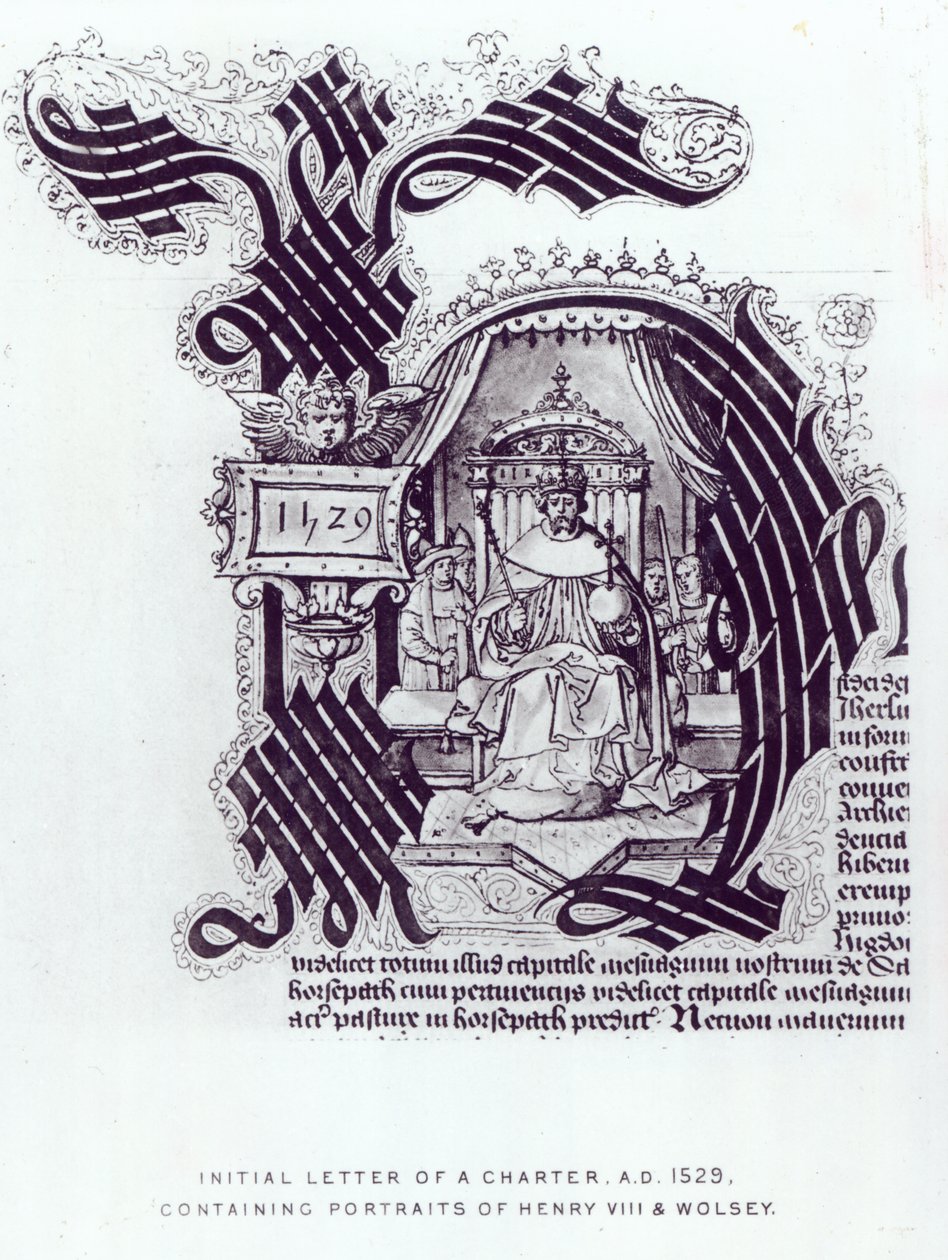 1529
fidei def
in form
conue
Archie
dencia
hiberni
exemp
primo
videlicet totum illud capitale mesuagium nostrum de Sa
horsepath cum pertinencijs videlicet capitale mesuagium
acr pasture in horsepath predict. Necnon manerium
INITIAL LETTER OF A CHARTER, A.D. 1529,
CONTAINING PORTRAITS OF HENRY VIII & WOLSEY.